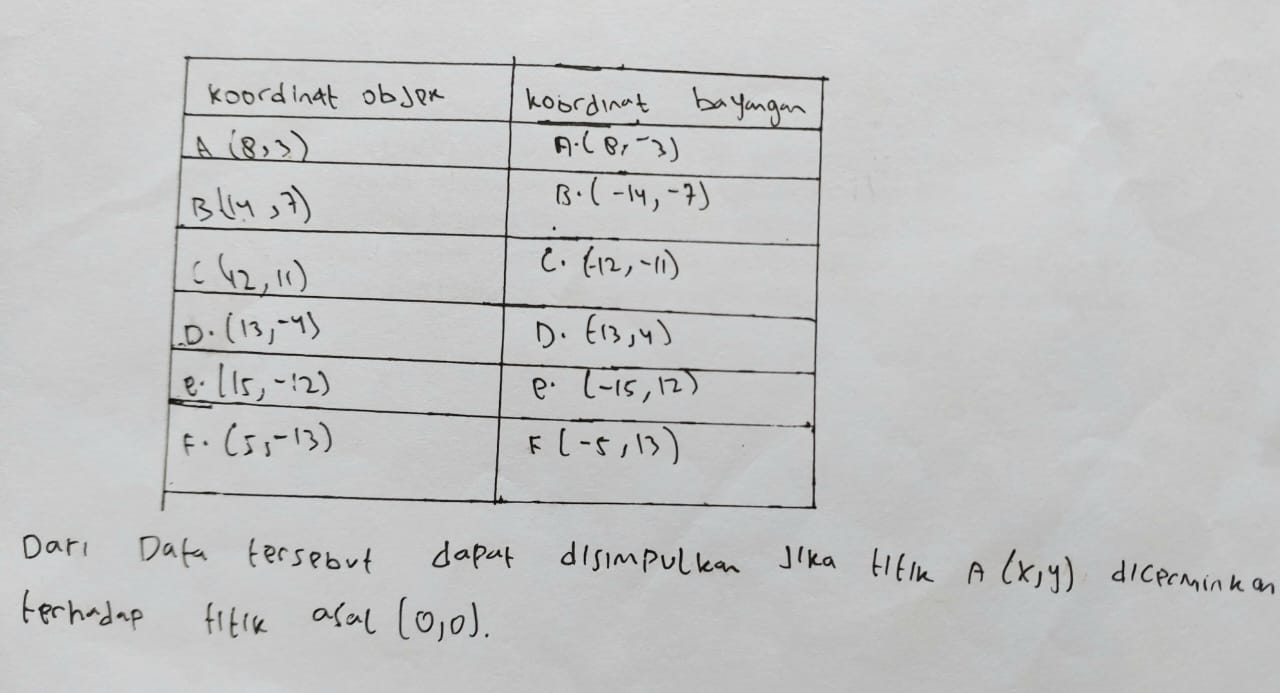 koordinat objek koordinat bayangan
A (8,3) A. (8,-3)
B (14,7) B. (-14,-7)
C (12,11) C. (-12,-11)
D. (13,-4) D. (-13,4)
e. (15,-12) e. (-15,12)
F. (5,-13) F (-5,13)
Dari Data tersebut dapat disimpulkan jika titik A (x,y) dicerminkan
terhadap titik asal (0,0).